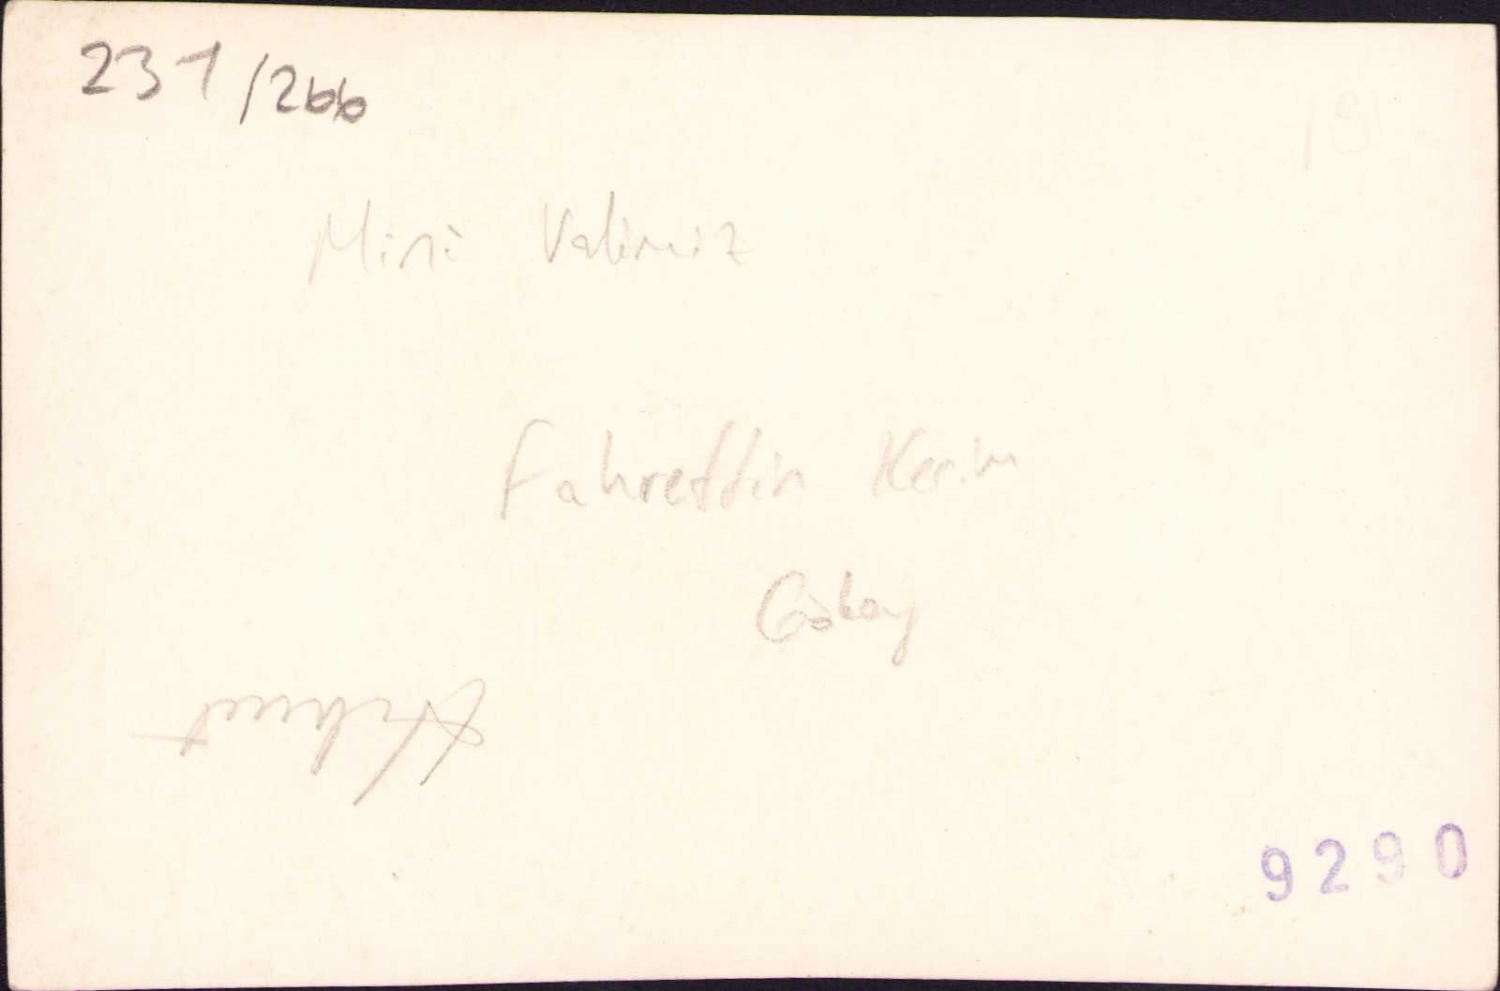 231/266
Mini Valimiz
Fahrettin Kerim
Gökay
9290